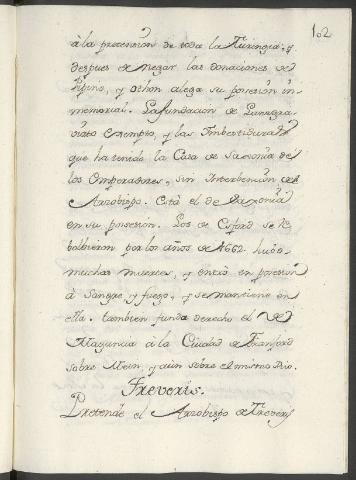 102
à la pretension de toda la Turingia, y
despues de negar las donaciones de
Pipino, y Othon alega su posesion in-
memorial. La fundacion de
viato exempto, y las Imbestiduras
que ha tenido la Casa de Saxonia de
los Emperadores, sin Interbencion del
Arzobispo. Está el de Saxonia
en su posesion. Los de Esford se le
bolbieron por los años de 1662. hubo
muchas muertes, y entró en posesion
à Sangre, y fuego, y se mantiene en
ella. tambien funda derecho el de
Maguncia à la Ciudad de Franford
sobre Mein, y aun sobre el mismo Rio.
Treveris.
Pretende el Arzobispo de Treveris